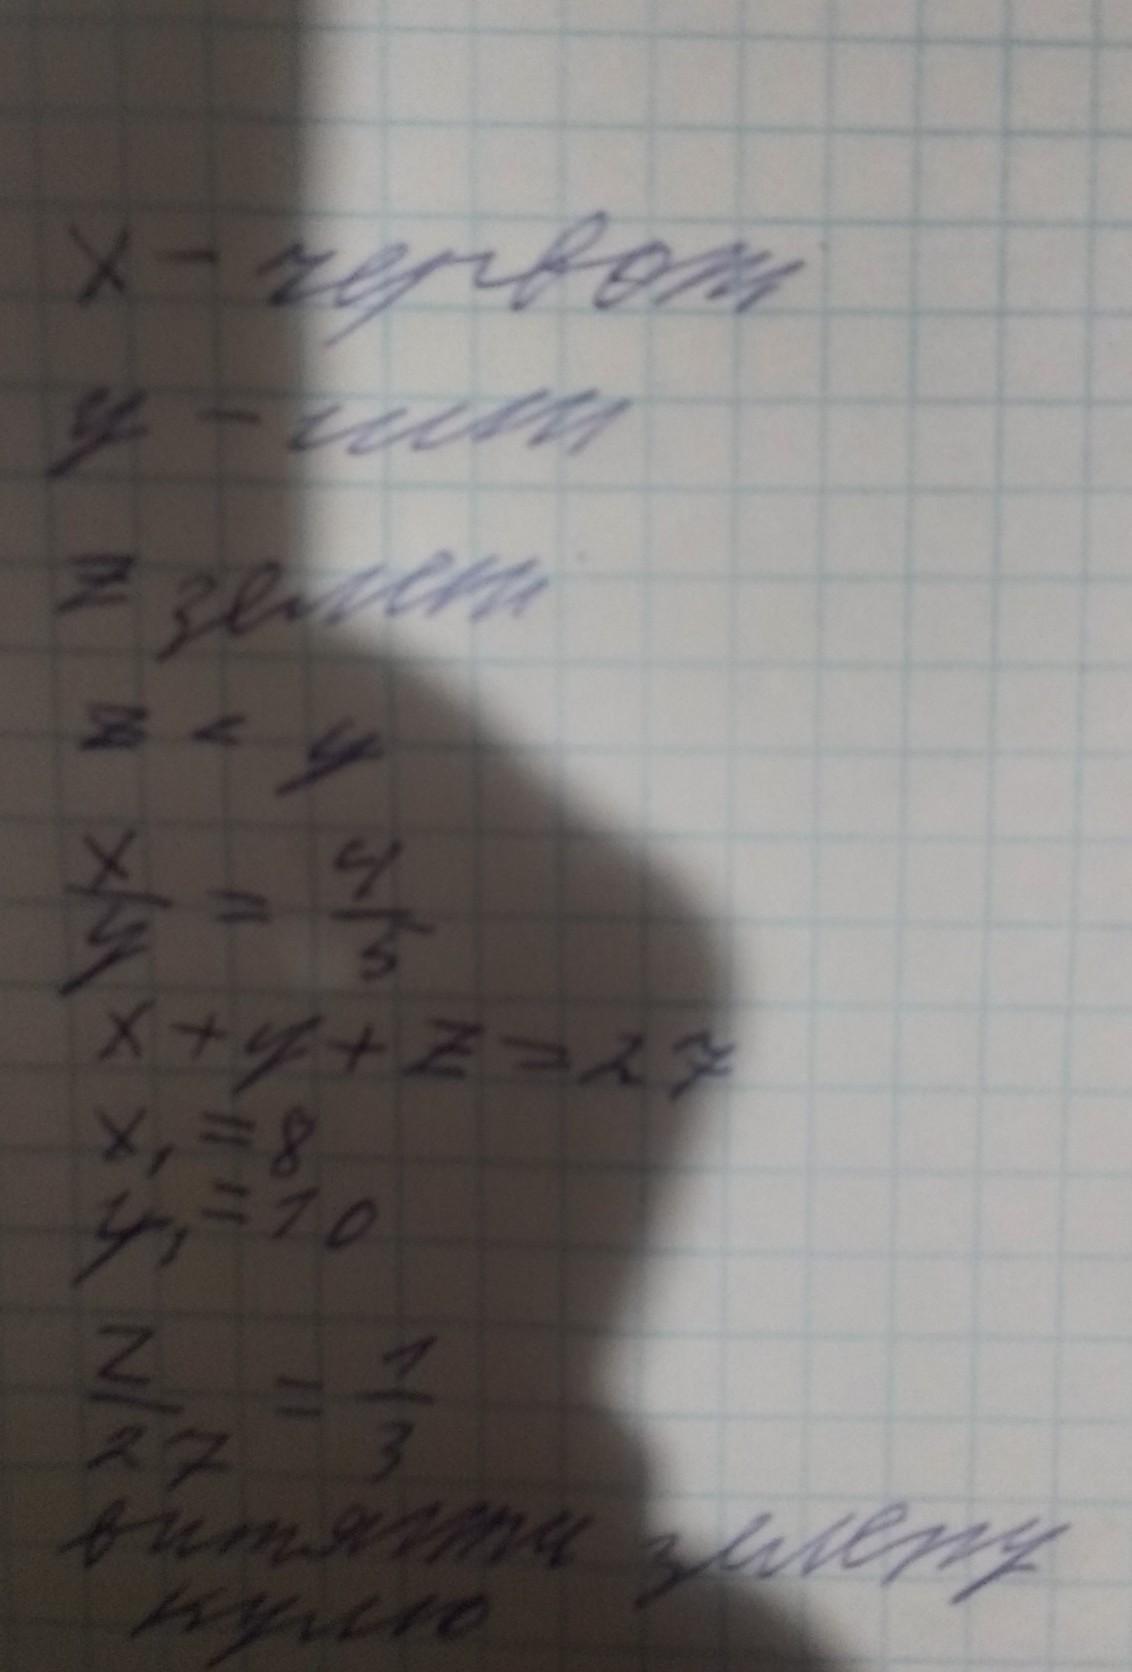 x - червоні
y - сині
z зелені
z < y
x/y = 4/5
x + y + z = 27
x₁ = 8
y₁ = 10
z/27 = 1/3
витягти зелену
кулю